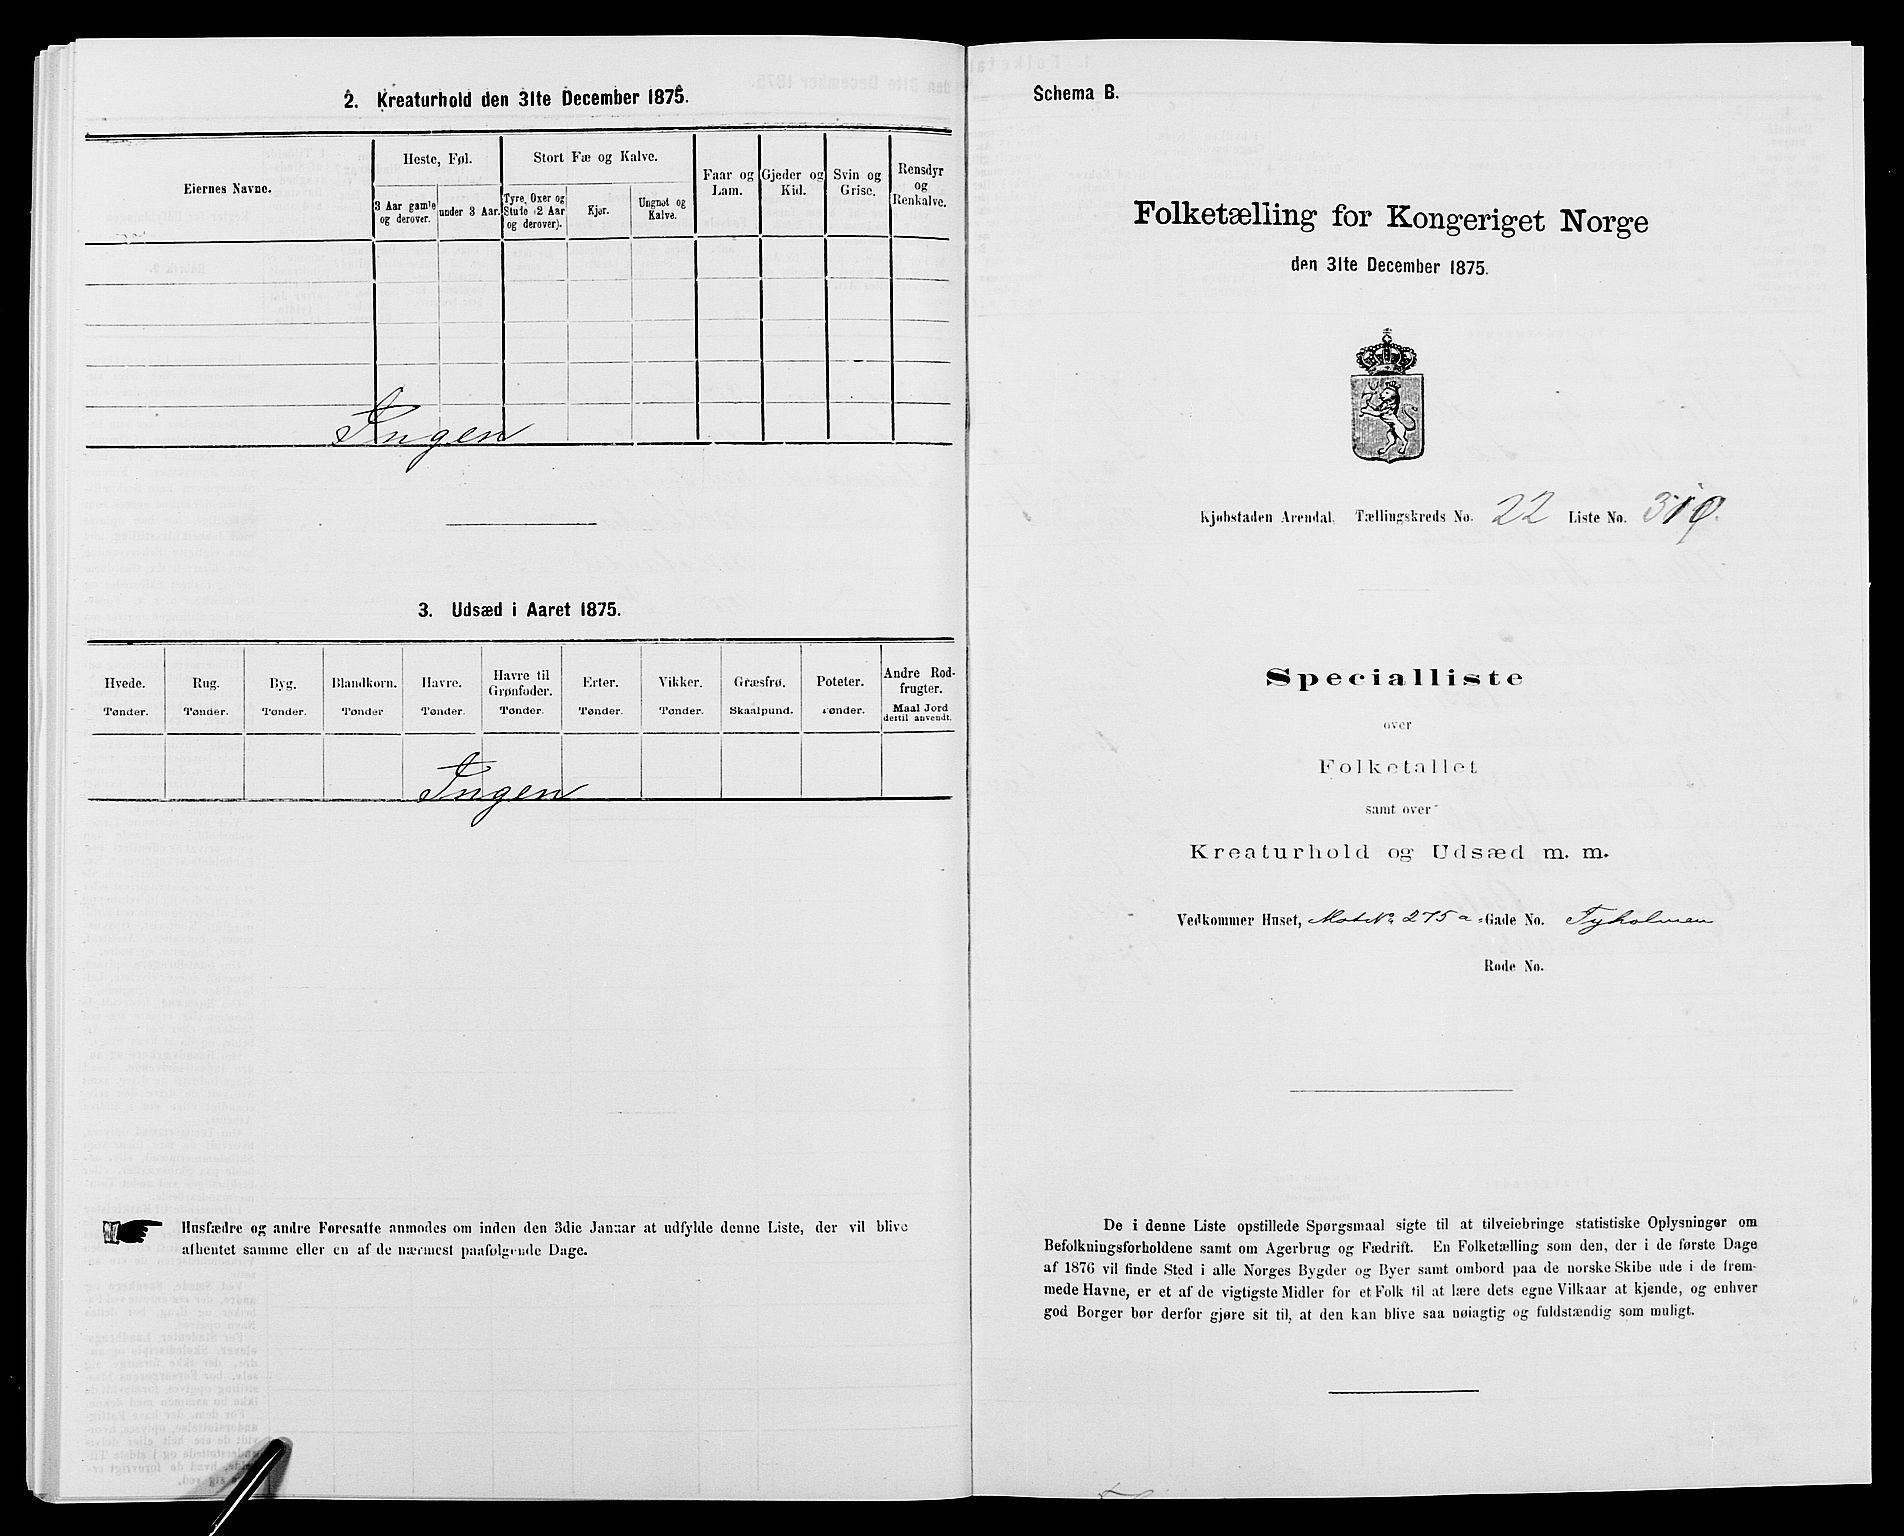 2. Kreaturhold den 31te December 1875.
Eiernes Navne.
Heste, Føl.
Stort Fæ og Kalve.
Faar og Lam.
Gjeder og Kid.
Svin og Grise.
Rensdyr og Renkalve.
3 Aar gamle og derover.
under 3 Aar.
Tyre, Oxer og Stude (2 Aar og derover).
Kjør.
Ungnøt og Kalve.
Ingen
3. Udsæd i Aaret 1875.
Hvede. Rug. Byg. Blandkorn. Havre. Havre til Grønfoder. Erter. Vikker. Græsfrø. Poteter. Andre Rodfrugter.
Tønder. Tønder. Tønder. Tønder Tønder. Tønder. Tønder. Tønder. Skaalpund. Tønder. Maal Jord dertil anvendt.
Ingen
Husfædre og andre Foresatte anmodes om inden den 3die Januar at udfylde denne Liste, der vil blive
afhentet samme eller en af de nærmest paafølgende Dage.
Schema B.
Folketælling for Kongeriget Norge
den 31te December 1875.
Kjøbstaden Arendal. Tællingskreds No. 22 Liste No.
Specialliste
over
Folketallet
samt over
Kreaturhold og Udsæd m. m.
Vedkommer Huset, Mat No 275 a Gade No. Tyholmen
Rode No.
De i denne Liste opstillede Spørgsmaal sigte til at tilveiebringe statistiske Oplysninger om
Befolkningsforholdene samt om Agerbrug og Fædrift. En Folketælling som den, der i de første Dage
af 1876 vil finde Sted i alle Norges Bygder og Byer samt ombord paa de norske Skibe ude i de frem-
mede Havne, er et af de vigtigste Midler for et Folk til at lære dets egne Vilkaar at kjende, og enhver
god Borger bør derfor gjøre sit til, at den kan blive saa nøiagtig og fuldstændig som muligt.